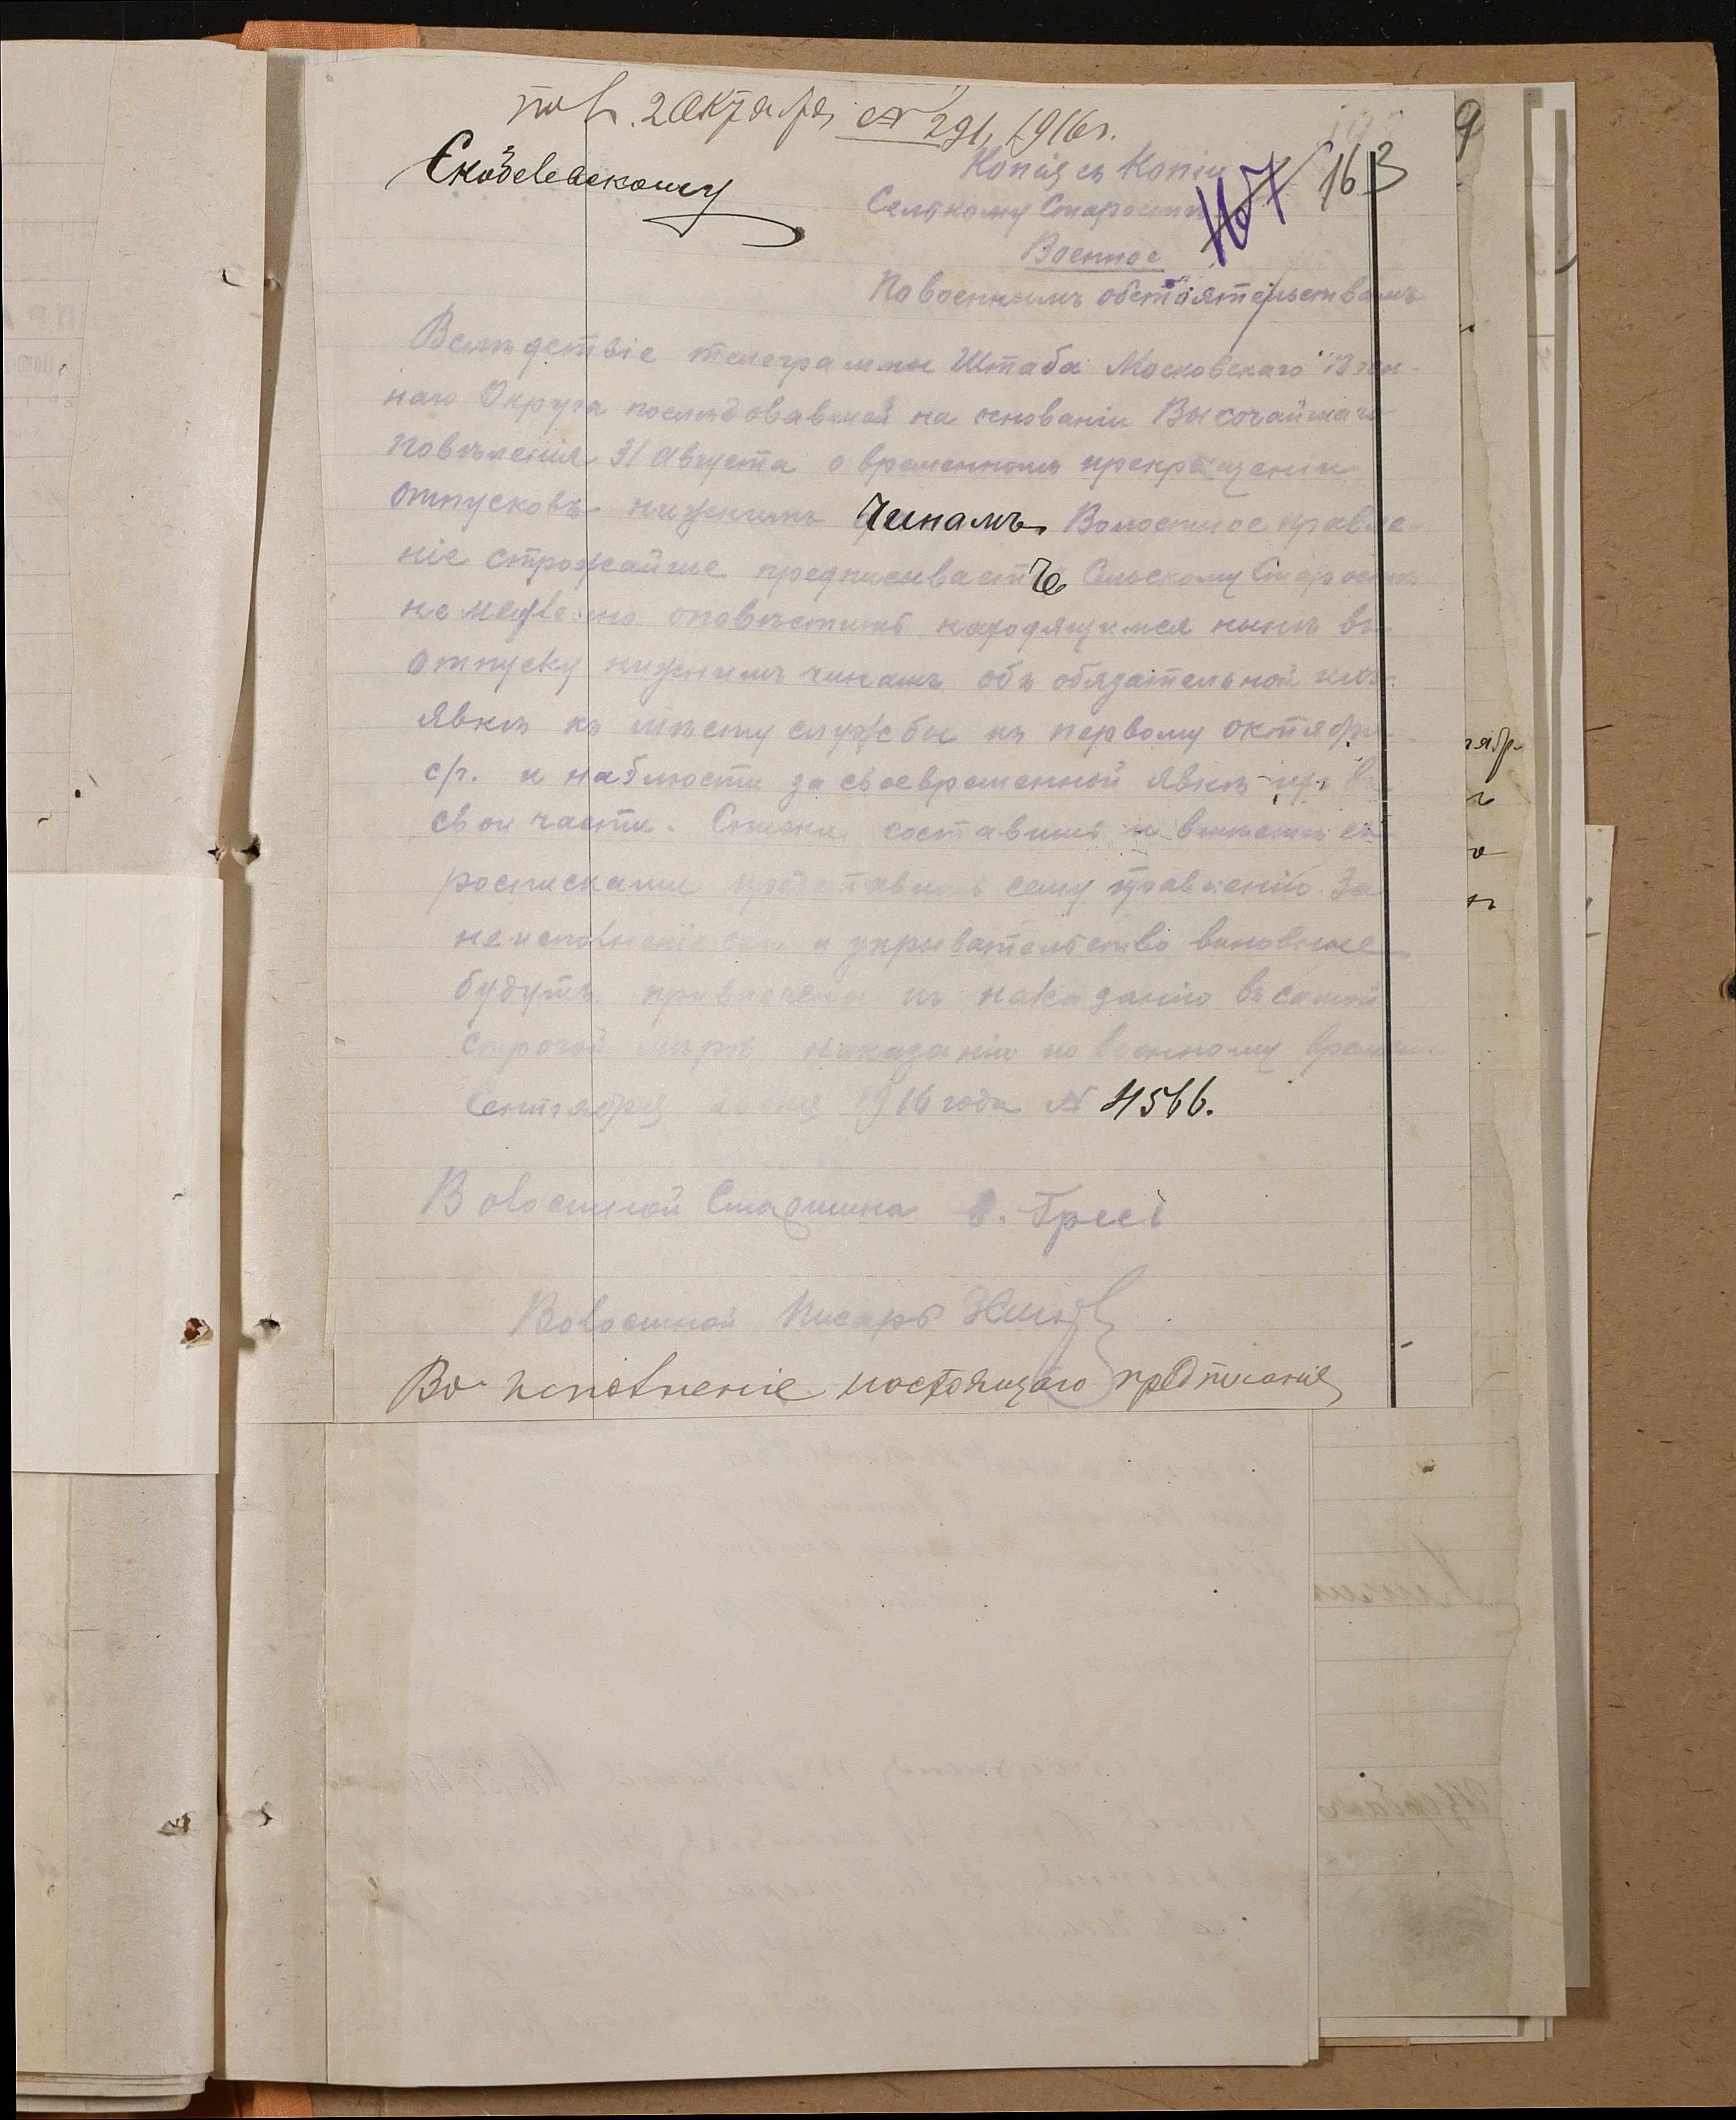 пол. 2 Октября № 291, 1916 г.
Скобелевскому
Копія съ Копіи
163
Сельскому Старостѣ
167
Военное
По военнымъ обстоятельствамъ
Вслѣдствіе телеграммы Штаба Московскаго Воен-
наго Округа послѣдовавшей на основаніи Высочайшаго
повѣленія 31 Августа о временномъ прекращеніи
отпусковъ нижнимъ Чинамъ, Волостное правле-
ніе строжайше предписываетъ Сельскому Старостѣ
немедленно оповѣстить находящимся нынѣ въ
отпуску нижнимъ чинамъ объ обязательной ихъ
явкѣ къ мѣсту службы къ первому октября
с/г. и наблюсти за своевременной явкѣ ихъ въ
свои части. Списки составить и вмѣстѣ съ
росписками представить сему правленію. За
неисполненіе сего и укрывательство виновные
будутъ привлечены къ наказанію въ самой
строгой мѣрѣ наказанію по военному времени.
Сентября дня 1916 года № 4566.
Волостной Старшина
Волостной Писарь
Во исполненіе настоящаго предписанія